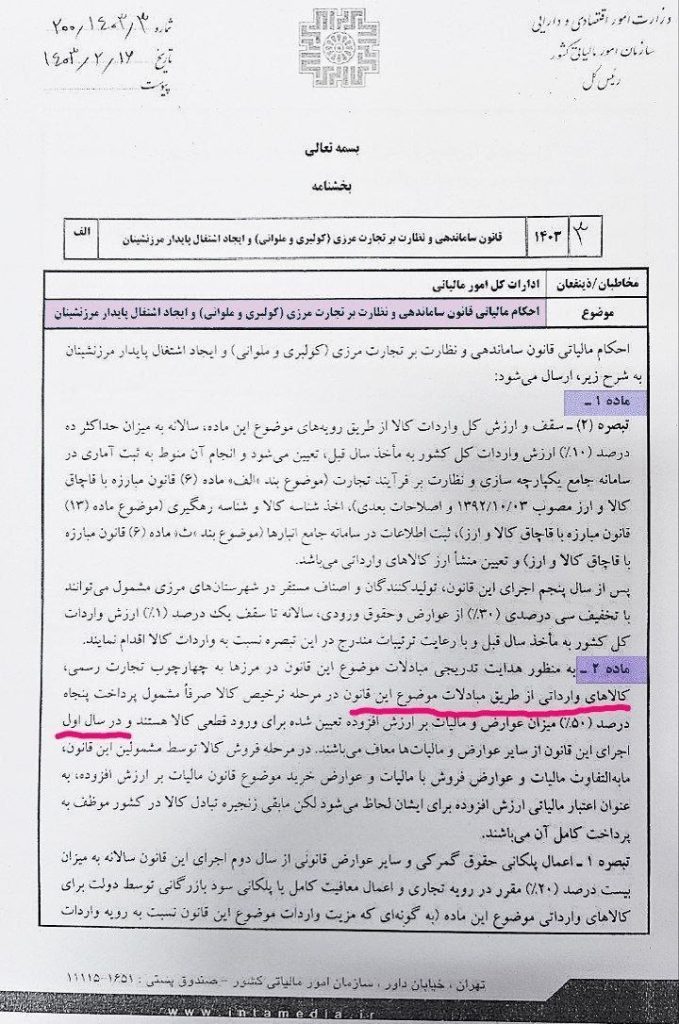 وزارت امور اقتصادی و دارایی
سازمان امور مالیاتی کشور
رئیس کل
شماره ۲۰۰/۱۴۰۳/۳
تاریخ ۱۴۰۳/۲/۱۶
پیوست
بسمه تعالی
بخشنامه
۳ ۱۴۰۳ قانون ساماندهی و نظارت بر تجارت مرزی (کولبری و ملوانی) و ایجاد اشتغال پایدار مرزنشینان الف
مخاطبان/ذینفعان ادارات کل امور مالیاتی
موضوع احکام مالیاتی قانون ساماندهی و نظارت بر تجارت مرزی (کولبری و ملوانی) و ایجاد اشتغال پایدار مرزنشینان
احکام مالیاتی قانون ساماندهی و نظارت بر تجارت مرزی (کولبری و ملوانی) و ایجاد اشتغال پایدار مرزنشینان
به شرح زیر، ارسال می‌شود:
ماده ۱ ـ
تبصره (۲) ـ سقف و ارزش کل واردات کالا از طریق رویه‌های موضوع این ماده، سالانه به میزان حداکثر ده
درصد (۱۰٪) ارزش واردات کل کشور به مأخذ سال قبل، تعیین می‌شود و انجام آن منوط به ثبت آماری در
سامانه جامع یکپارچه سازی و نظارت بر فرآیند تجارت (موضوع بند «الف» ماده (۶) قانون مبارزه با قاچاق
کالا و ارز مصوب ۱۳۹۲/۱۰/۰۳ و اصلاحات بعدی)، اخذ شناسه کالا و شناسه رهگیری (موضوع ماده (۱۳)
قانون مبارزه با قاچاق کالا و ارز)، ثبت اطلاعات در سامانه جامع انبارها (موضوع بند «ث» ماده (۶) قانون مبارزه
با قاچاق کالا و ارز) و تعیین منشأ ارز کالاهای وارداتی می‌باشد.
پس از سال پنجم اجرای این قانون، تولیدکنندگان و اصناف مستقر در شهرستان‌های مرزی مشمول می‌توانند
با تخفیف سی درصدی (۳۰٪) از عوارض وحقوق ورودی، سالانه تا سقف یک درصد (۱٪) ارزش واردات
کل کشور به مأخذ سال قبل و با رعایت ترتیبات مندرج در این تبصره نسبت به واردات کالا اقدام نمایند.
ماده ۲ ـ به منظور هدایت تدریجی مبادلات موضوع این قانون در مرزها به چهارچوب تجارت رسمی،
کالاهای وارداتی از طریق مبادلات موضوع این قانون در مرحله ترخیص کالا صرفاً مشمول پرداخت پنجاه
درصد (۵۰٪) میزان عوارض و مالیات بر ارزش افزوده تعیین شده برای ورود قطعی کالا هستند و در سال اول
اجرای این قانون از سایر عوارض و مالیات‌ها معاف می‌باشند. در مرحله فروش کالا توسط مشمولین این قانون،
مابه‌التفاوت مالیات و عوارض فروش با مالیات و عوارض خرید موضوع قانون مالیات بر ارزش افزوده، به
عنوان اعتبار مالیاتی ارزش افزوده برای ایشان لحاظ می‌شود لکن مابقی زنجیره تبادل کالا در کشور موظف به
پرداخت کامل آن می‌باشند.
تبصره ۱ ـ اعمال پلکانی حقوق گمرکی و سایر عوارض قانونی از سال دوم اجرای این قانون سالانه به میزان
بیست درصد (۲۰٪) مقرر در رویه تجاری و اعمال معافیت کامل یا پلکانی سود بازرگانی توسط دولت برای
کالاهای وارداتی موضوع این ماده (به گونه‌ای که مزیت واردات موضوع این قانون نسبت به رویه واردات
تهران، خیابان داور، سازمان امور مالیاتی کشور - صندوق پستی : ۱۶۵۱-۱۱۱۱۵
www.intamedia.ir